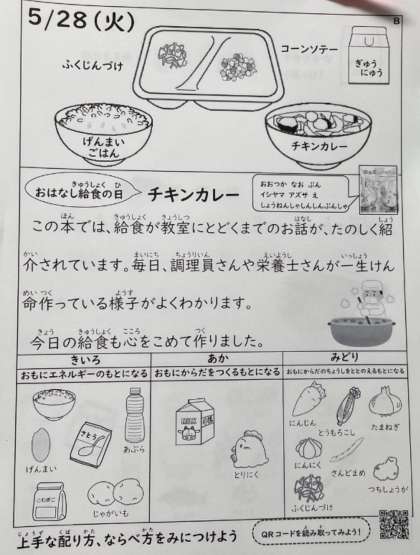 5/28(火)
B
ふくじんづけ
コーンソテー
ぎゅう
にゅう
げんまい
ごはん
チキンカレー
おはなし給食の日
きゅうしょく ひ
チキンカレー
おおつか なお ぶん
イシヤマ アズサ え
しょうねんしゃしんしんぶんしゃ
ほん きゅうしょく きょうしつ はなし しょう
この本では、給食が教室にとどくまでのお話が、たのしく紹
かい まいにち ちょうりいん えいようし いっしょう
介されています。毎日、調理員さんや栄養士さんが一生けん
めい つく ようす
命作っている様子がよくわかります。
きょう きゅうしょく こころ つく
今日の給食も心をこめて作りました。
きいろ
おもにエネルギーのもとになる
げんまい
さとう
あぶら
こむぎこ
じゃがいも
あか
おもにからだをつくるもとになる
とりにく
みどり
おもにからだのちょうしをととのえるもとになる
にんじん
とうもろこし
たまねぎ
にんにく
さんどまめ
つちしょうが
ふくじんづけ
じょうず くば かた かた
上手な配り方、ならべ方をみにつけよう
QRコードを読み取ってみよう!